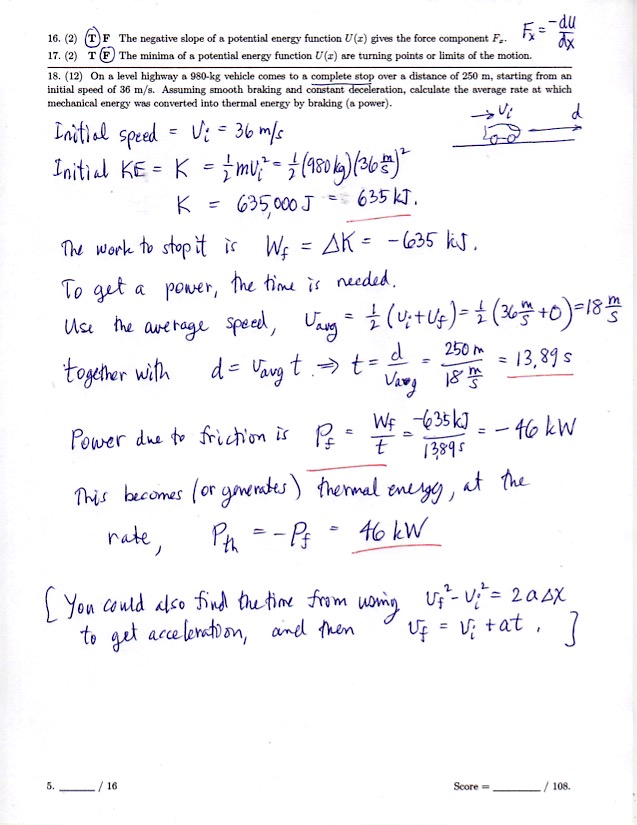 16. (2) T F The negative slope of a potential energy function U(x) gives the force component Fₓ. Fₓ = -dU/dx
17. (2) T F The minima of a potential energy function U(x) are turning points or limits of the motion.
18. (12) On a level highway a 980-kg vehicle comes to a complete stop over a distance of 250 m, starting from an
initial speed of 36 m/s. Assuming smooth braking and constant deceleration, calculate the average rate at which
mechanical energy was converted into thermal energy by braking (a power).
→ vᵢ d
Initial speed = vᵢ = 36 m/s
Initial KE = K = ½mvᵢ² = ½(980 kg)(36 m/s)²
K = 635,000 J = 635 kJ.
The work to stop it is W_f = ΔK = -635 kJ.
To get a power, the time is needed.
Use the average speed, v_avg = ½(vᵢ+v_f) = ½(36 m/s + 0) = 18 m/s
together with d = v_avg t. ⇒ t = d/v_avg = 250 m/18 m/s = 13.89 s
Power due to friction is P_f = W_f/t = -635 kJ/13.89 s = -46 kW
This becomes (or generates) thermal energy, at the
rate, P_th = -P_f = 46 kW
[ You could also find the time from using v_f² - vᵢ² = 2aΔx
to get acceleration, and then v_f = vᵢ + at. ]
5. ______ / 16 Score = ________ / 108.